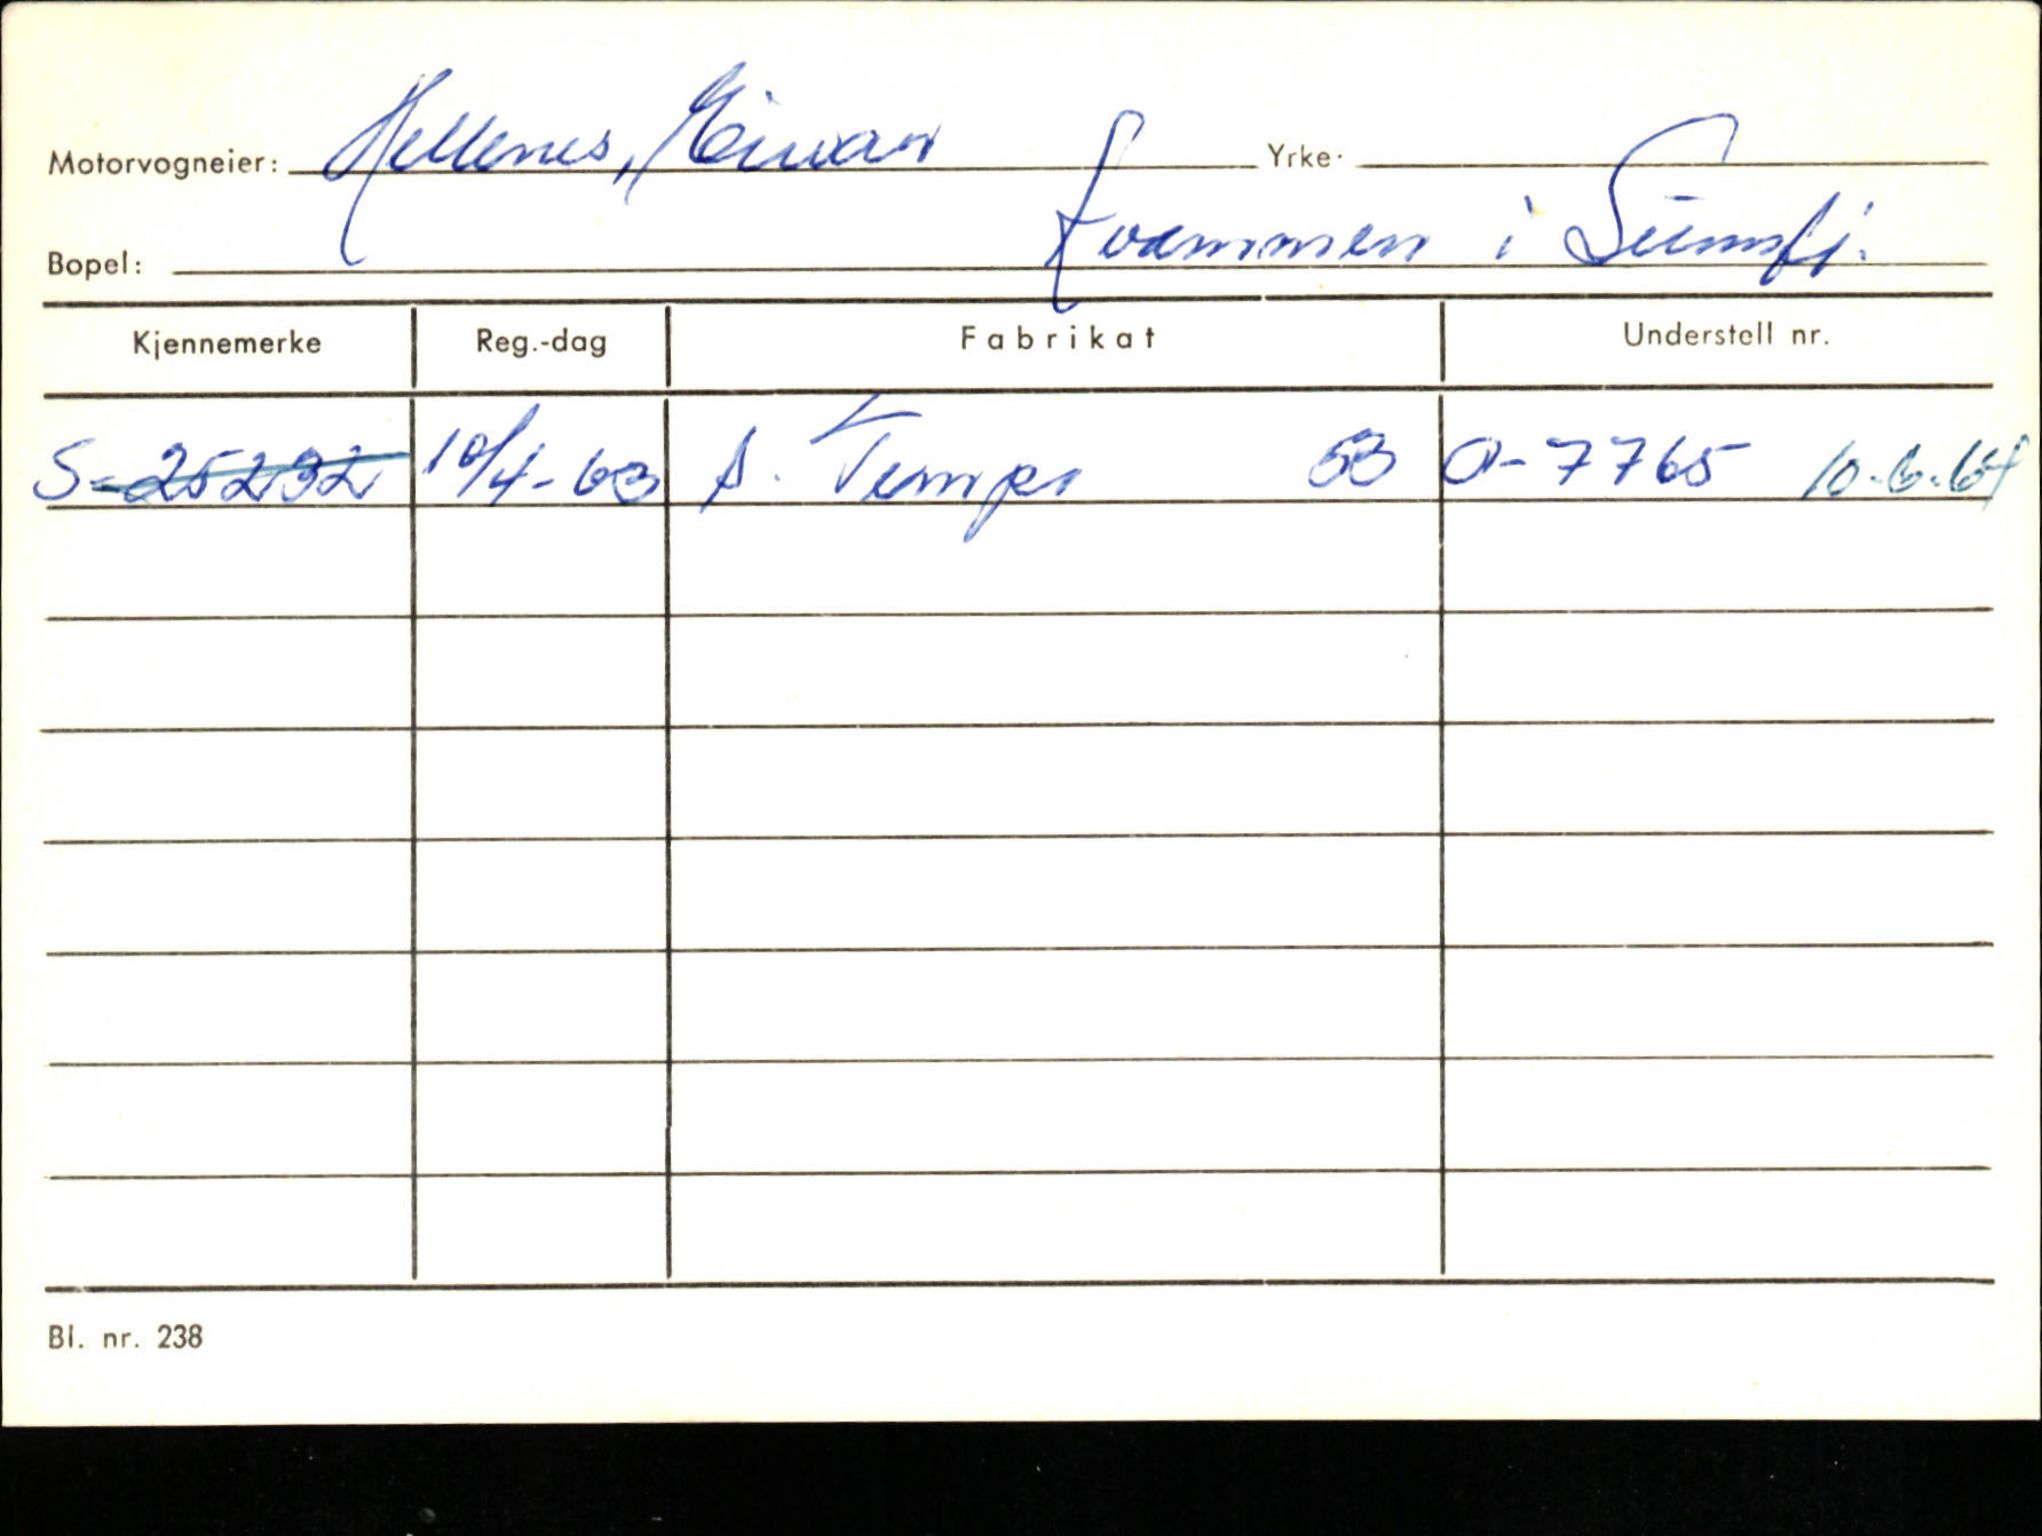 Motorvogneier: Hellenes, Eivar Yrke:
Bopel: Kvammen i Sunnfj.
Kjennemerke Reg.-dag Fabrikat Understell nr.
S-25232 10/4-63 S. Tempo 53 O-7765 10-6-64
Bl. nr. 238